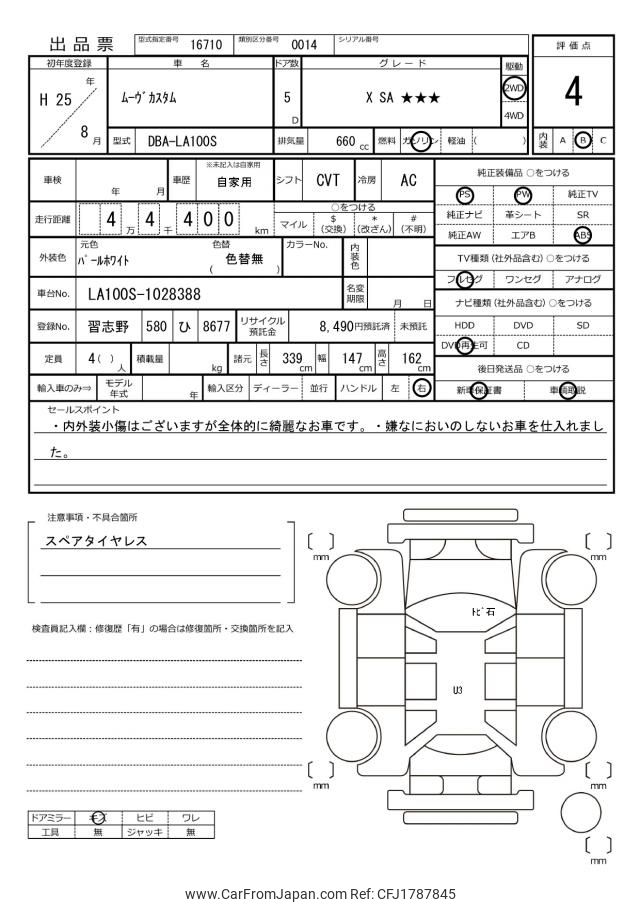 出品票 型式指定番号 16710 類別区分番号 0014 シリアル番号
初年度登録 車 名 ドア数 グレード 駆動 評価点
H 25 年 8 月 ムーヴカスタム 5 D X SA ★★★ 2WD 4WD 4
型式 DBA-LA100S 排気量 660 cc 燃料 ガソリン 軽油 ( ) 内装 A B C
車検 年 月 車歴 ※未記入は自家用 自家用 シフト CVT 冷房 AC
走行距離 4 万 4 千 4 0 0 km ○をつける
マイル $ (交換) * (改ざん) # (不明)
外装色 元色 パールホワイト 色替 ( 色替無 ) カラーNo. 内装色
車台No. LA100S-1028388 名変期限 月 日
登録No. 習志野 580 ひ 8677 リサイクル預託金 8,490円預託済 未預託
定員 4 ( ) 人 積載量 kg 諸元 長さ 339 cm 幅 147 cm 高さ 162 cm
輸入車のみ⇒ モデル年式 年 輸入区分 ディーラー 並行 ハンドル 左 右
純正装備品 ○をつける
PS PW 純正TV
純正ナビ 革シート SR
純正AW エアB ABS
TV種類(社外品含む) ○をつける
フルセグ ワンセグ アナログ
ナビ種類(社外品含む) ○をつける
HDD DVD SD
DVD再生可 CD
後日発送品 ○をつける
新車保証書 車輌取説
セールスポイント
・内外装小傷はございますが全体的に綺麗なお車です。・嫌なにおいのしないお車を仕入れまし
た。
注意事項・不具合箇所
スペアタイヤレス
検査員記入欄：修復歴「有」の場合は修復箇所・交換箇所を記入
mm mm
トビ石
U3
mm mm
mm
ドアミラー キズ ヒビ ワレ
工具 無 ジャッキ 無
www.CarFromJapan.com Ref: CFJ1787845